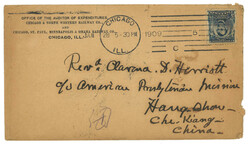 OFFICE OF THE AUDITOR OF EXPENDITURES
CHICAGO & NORTH WESTERN RAILWAY CO.
AND
CHICAGO, ST. PAUL, MINNEAPOLIS & OMAHA RAILWAY CO.
CHICAGO, ILL.
CHICAGO
ILL.
5-30PM
1909
Rev. Clarence D. Herriott
c/o American Presbyterian Mission
Hangchow
Che-Kiang
China